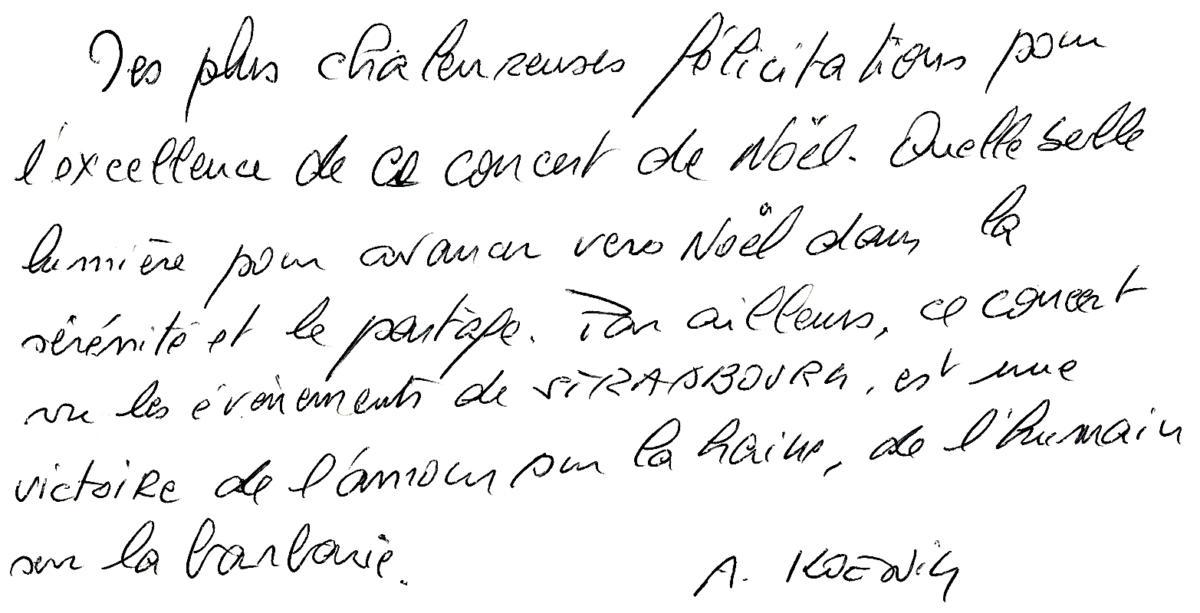 Mes plus chaleureuses félicitations pour
l'excellence de ce concert de Noël. Quelle belle
lumière pour avancer vers Noël dans la
sérénité et le partage. Par ailleurs, ce concert
vu les événements de STRASBOURG, est une
victoire de l'amour sur la haine, de l'humain
sur la barbarie.
A. KOENIG